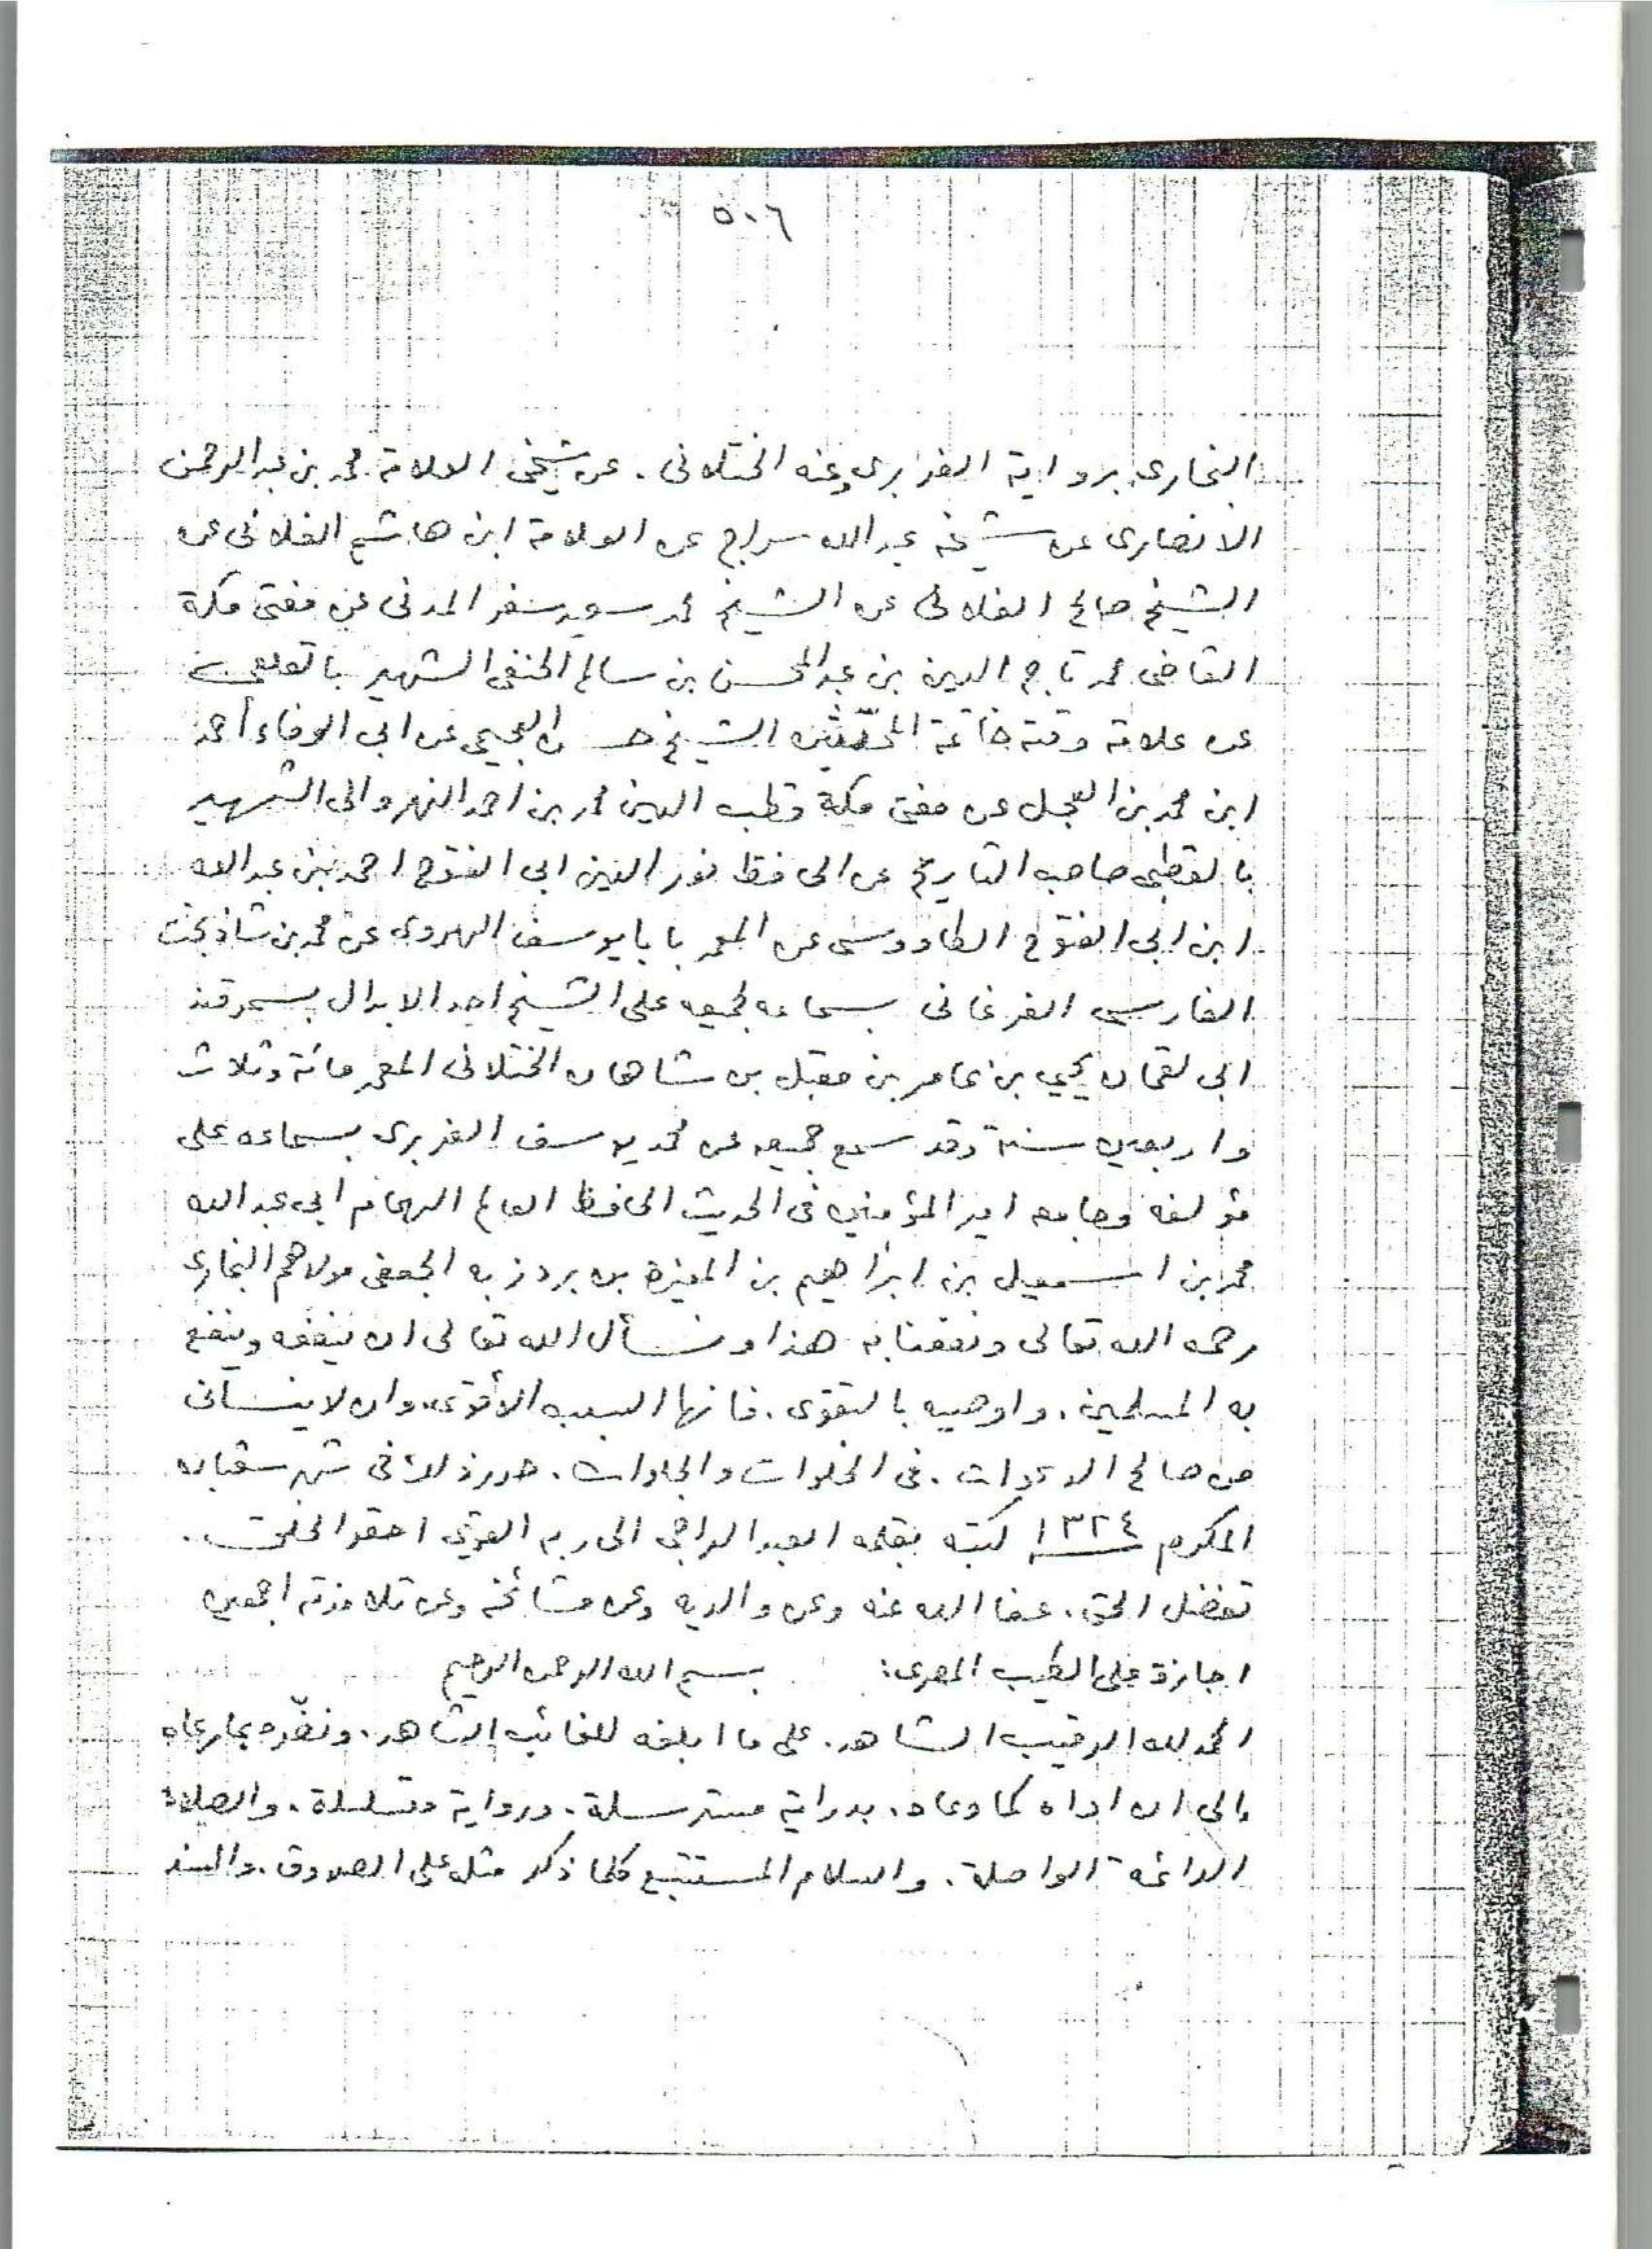 ٥٠٦
البخارى برواية الفربرى وعنه الختلانى . عن شيخى العلامة محمد بن عبد الرحمن
الانصارى عن شيخه عبد الله سراج عن العلامة ابن هاشم الفلانى عن
الشيخ صالح الفلانى عن الشيخ محمد سعيد سفر المدنى عن مفتى مكة
القاضى محمد تاج الدين بن عبد المحسن بن سالم الحنفى الشهير بالقلعى
عن علامة وقته خاتمة المحدّثين الشيخ حسن العجيمى عن ابى الوفاء أحمد
ابن محمد بن العجل عن مفتى مكة قطب الدين محمد بن احمد النهروالى الشهير
بالقطبى صاحب التاريخ عن الحافظ نور الدين ابى الفتوح احمد بن عبد الله
ابن ابى الفتوح الطاووسى عن المعمر بابا يوسف الهروى عن محمد بن شاذبخت
الفارسى الفرغانى بسماعه لجميعه على الشيخ احد الابدال بسمرقند
ابى لقمان يحيى بن عامر بن مقبل بن شاهان الختلانى المعمر مائة وثلاث
واربعين سنة وقد سمع جميعه عن محمد يوسف الفربرى بسماعه على
مؤلفه وجامعه امير المؤمنين فى الحديث الحافظ العالم الهمام ابى عبد الله
محمد بن اسمعيل بن ابراهيم بن المغيرة بن بردزبه الجعفى مولاهم البخارى
رحمه الله تعالى ونفعنا به هذا ونسأل الله تعالى ان ينفعه وينفع
به المسلمين . واوصيه بالتقوى . فانها السبب الأقوى . وان لا ينسانى
من صالح الدعوات . فى الخلوات والجلوات . حرر ذلك فى شهر شعبان
المكرم ١٣٢٤ كتبه بقلمه العبد الراجى الى ربه القوى احقر الخلق .
تفضل الحق . عفا الله عنه وعن والديه وعن مشائخه وعن تلامذته اجمعين
اجازة على الطيب المصرى : بسم الله الرحمن الرحيم
الحمد لله الرقيب الشاهد . على ما ابلغه للغائب الشاهد . ونضّره بما رعاه
الى ان اداه كما وعاه . بدراية مسترسلة . ورواية متسلسلة . والصلاة
الدائمة الواصلة . والسلام المستتبع كلما ذكر مثله على الصادق . والسند